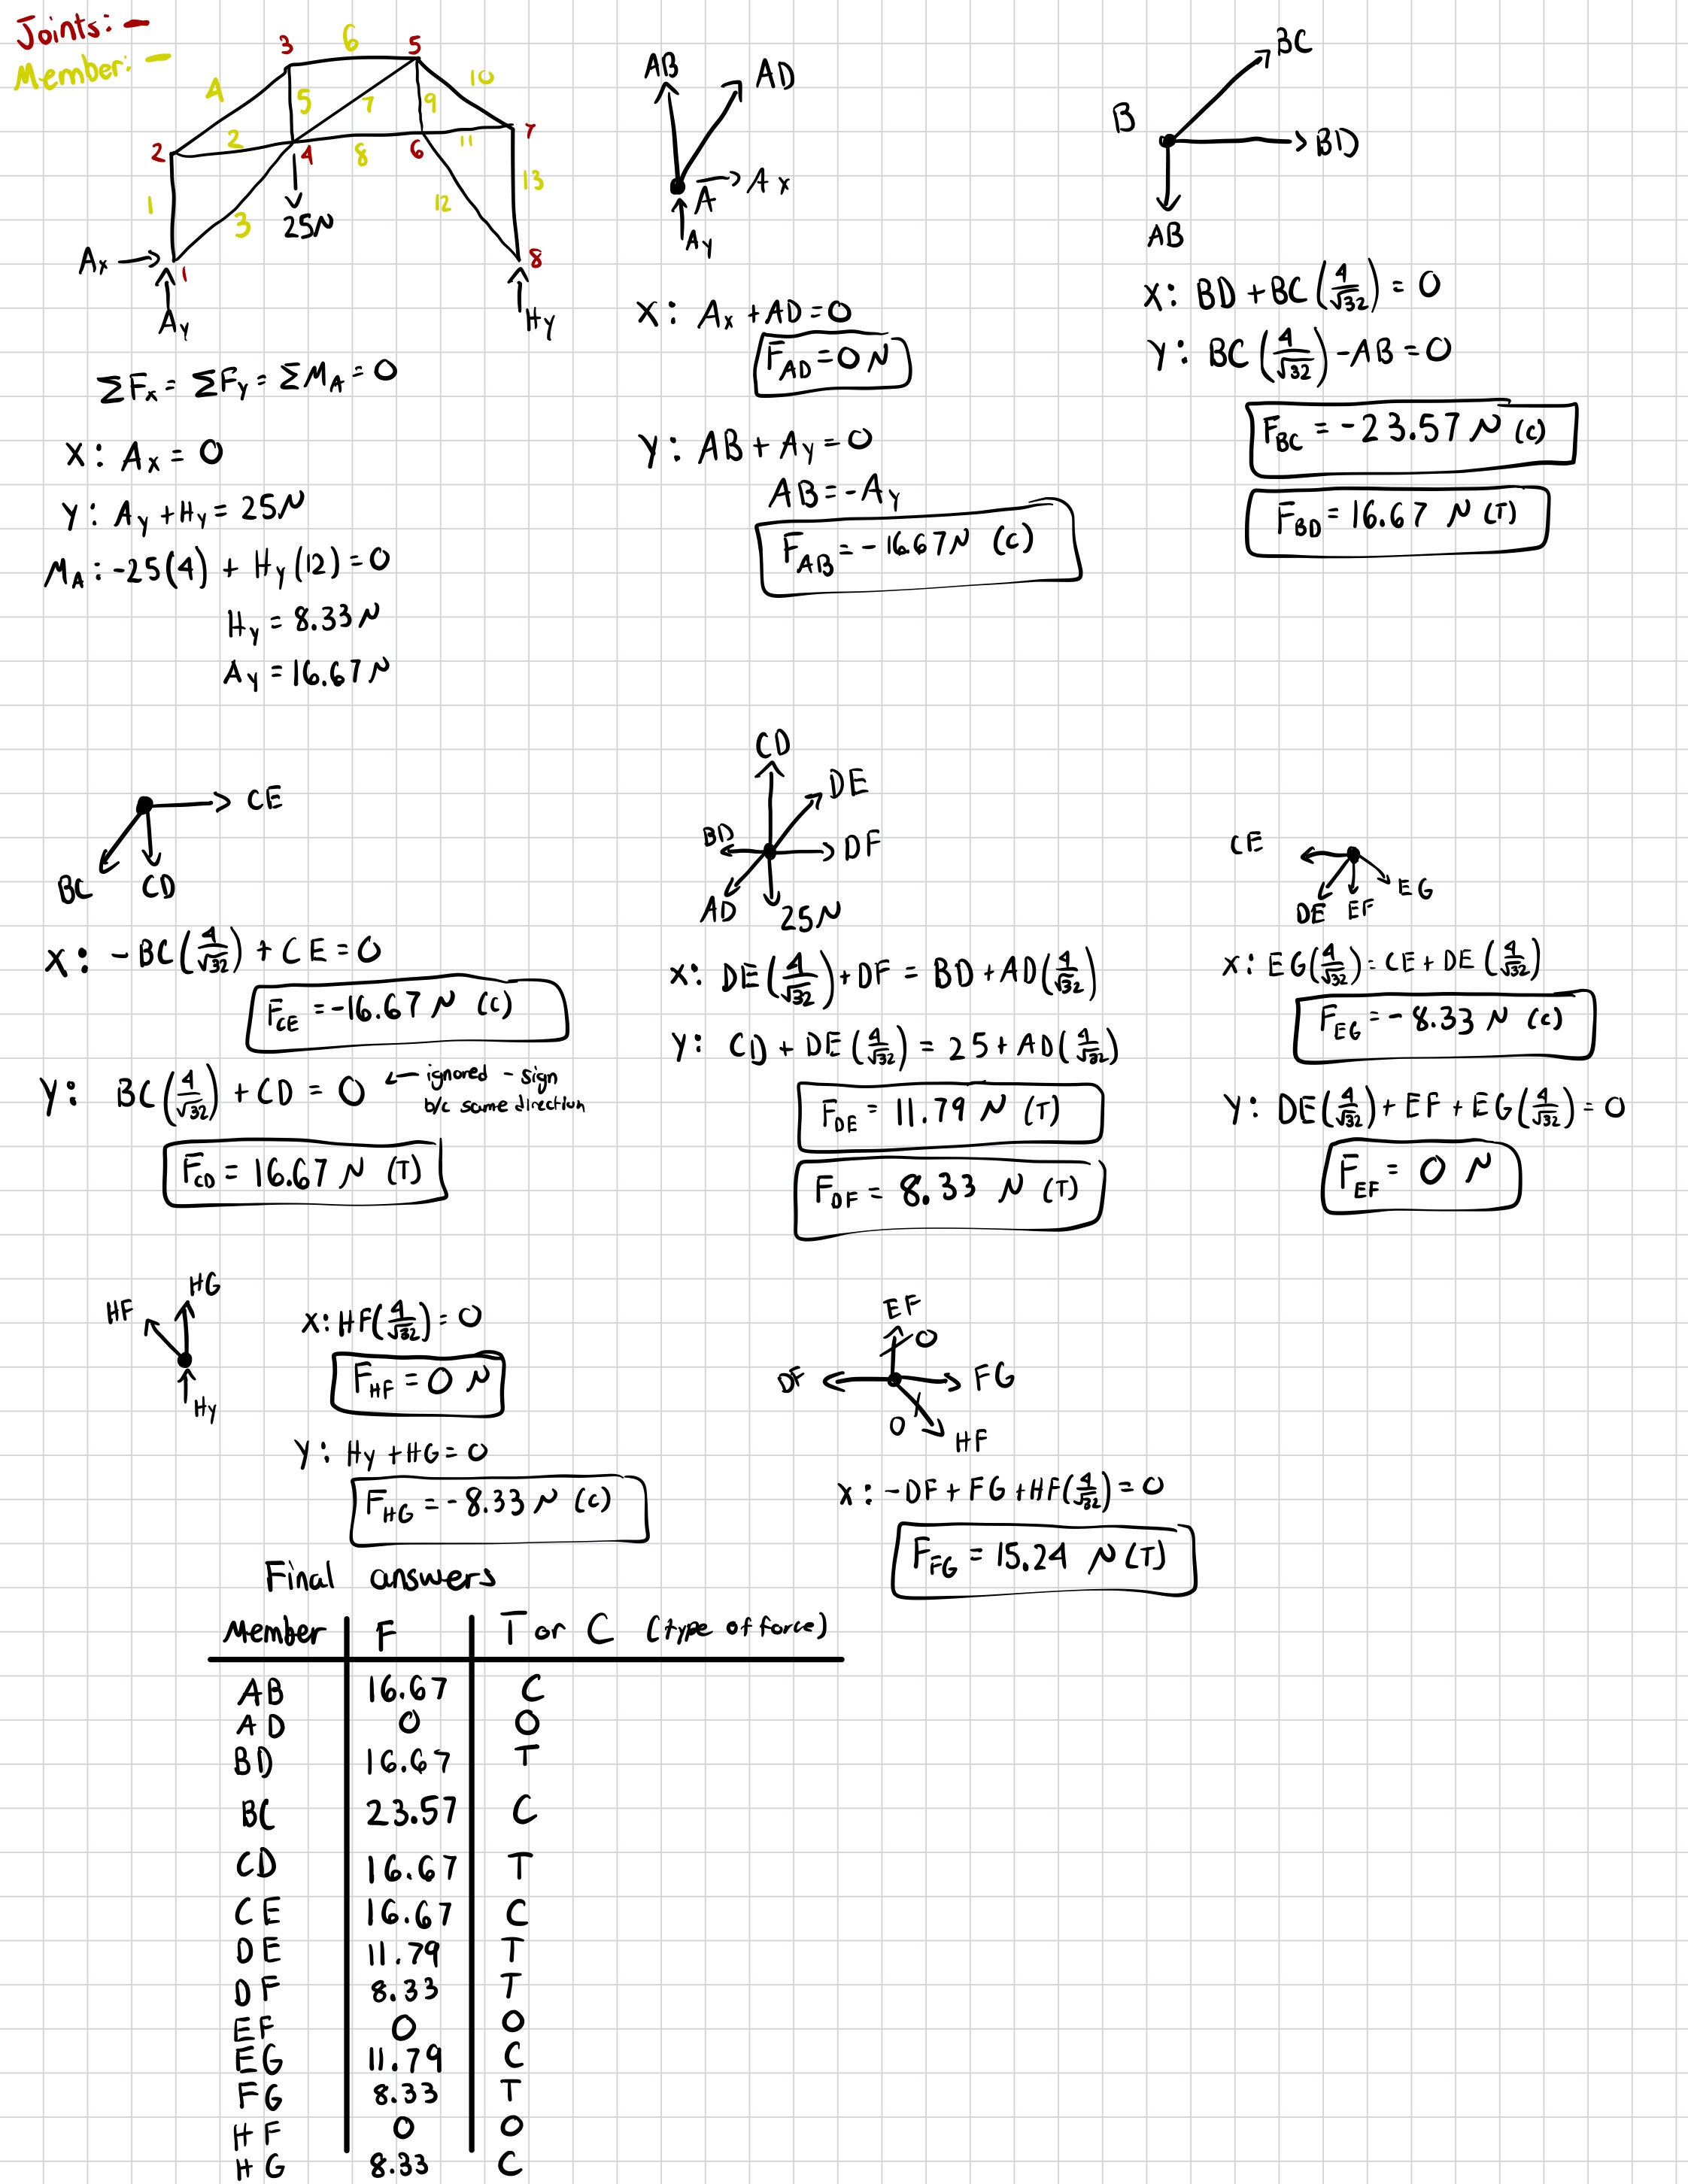 Joints: -
Member: -
3 6 5
4 5 7 9 10
2 2 4 8 6 11 7
1 3 25N 12 13
Ax 1 8
Ay Hy
ΣFx = ΣFy = ΣMA = 0
X: Ax = 0
Y: Ay + Hy = 25N
MA: -25(4) + Hy(12) = 0
Hy = 8.33 N
Ay = 16.67 N
AB AD
A Ax
Ay
X: Ax + AD = 0
FAD = 0 N
Y: AB + Ay = 0
AB = -Ay
FAB = -16.67 N (C)
BC
B
BD
AB
X: BD + BC(4/√32) = 0
Y: BC(4/√32) - AB = 0
FBC = -23.57 N (C)
FBD = 16.67 N (T)
CE
BC CD
X: -BC(4/√32) + CE = 0
FCE = -16.67 N (C)
Y: BC(4/√32) + CD = 0 ← ignored - sign
b/c same direction
FCD = 16.67 N (T)
CD
DE
BD DF
AD 25N
X: DE(4/√32) + DF = BD + AD(4/√32)
Y: CD + DE(4/√32) = 25 + AD(4/√32)
FDE = 11.79 N (T)
FDF = 8.33 N (T)
CE
DE EF EG
X: EG(4/√32) = CE + DE(4/√32)
FEG = -8.33 N (C)
Y: DE(4/√32) + EF + EG(4/√32) = 0
FEF = 0 N
HF HG
Hy
X: HF(4/√32) = 0
FHF = 0 N
Y: Hy + HG = 0
FHG = -8.33 N (C)
EF
0
DF FG
0 HF
X: -DF + FG + HF(4/√32) = 0
FFG = 15.24 N (T)
Final answers
Member F T or C (type of force)
AB 16.67 C
AD 0 0
BD 16.67 T
BC 23.57 C
CD 16.67 T
CE 16.67 C
DE 11.79 T
DF 8.33 T
EF 0 0
EG 11.79 C
FG 8.33 T
HF 0 0
HG 8.33 C